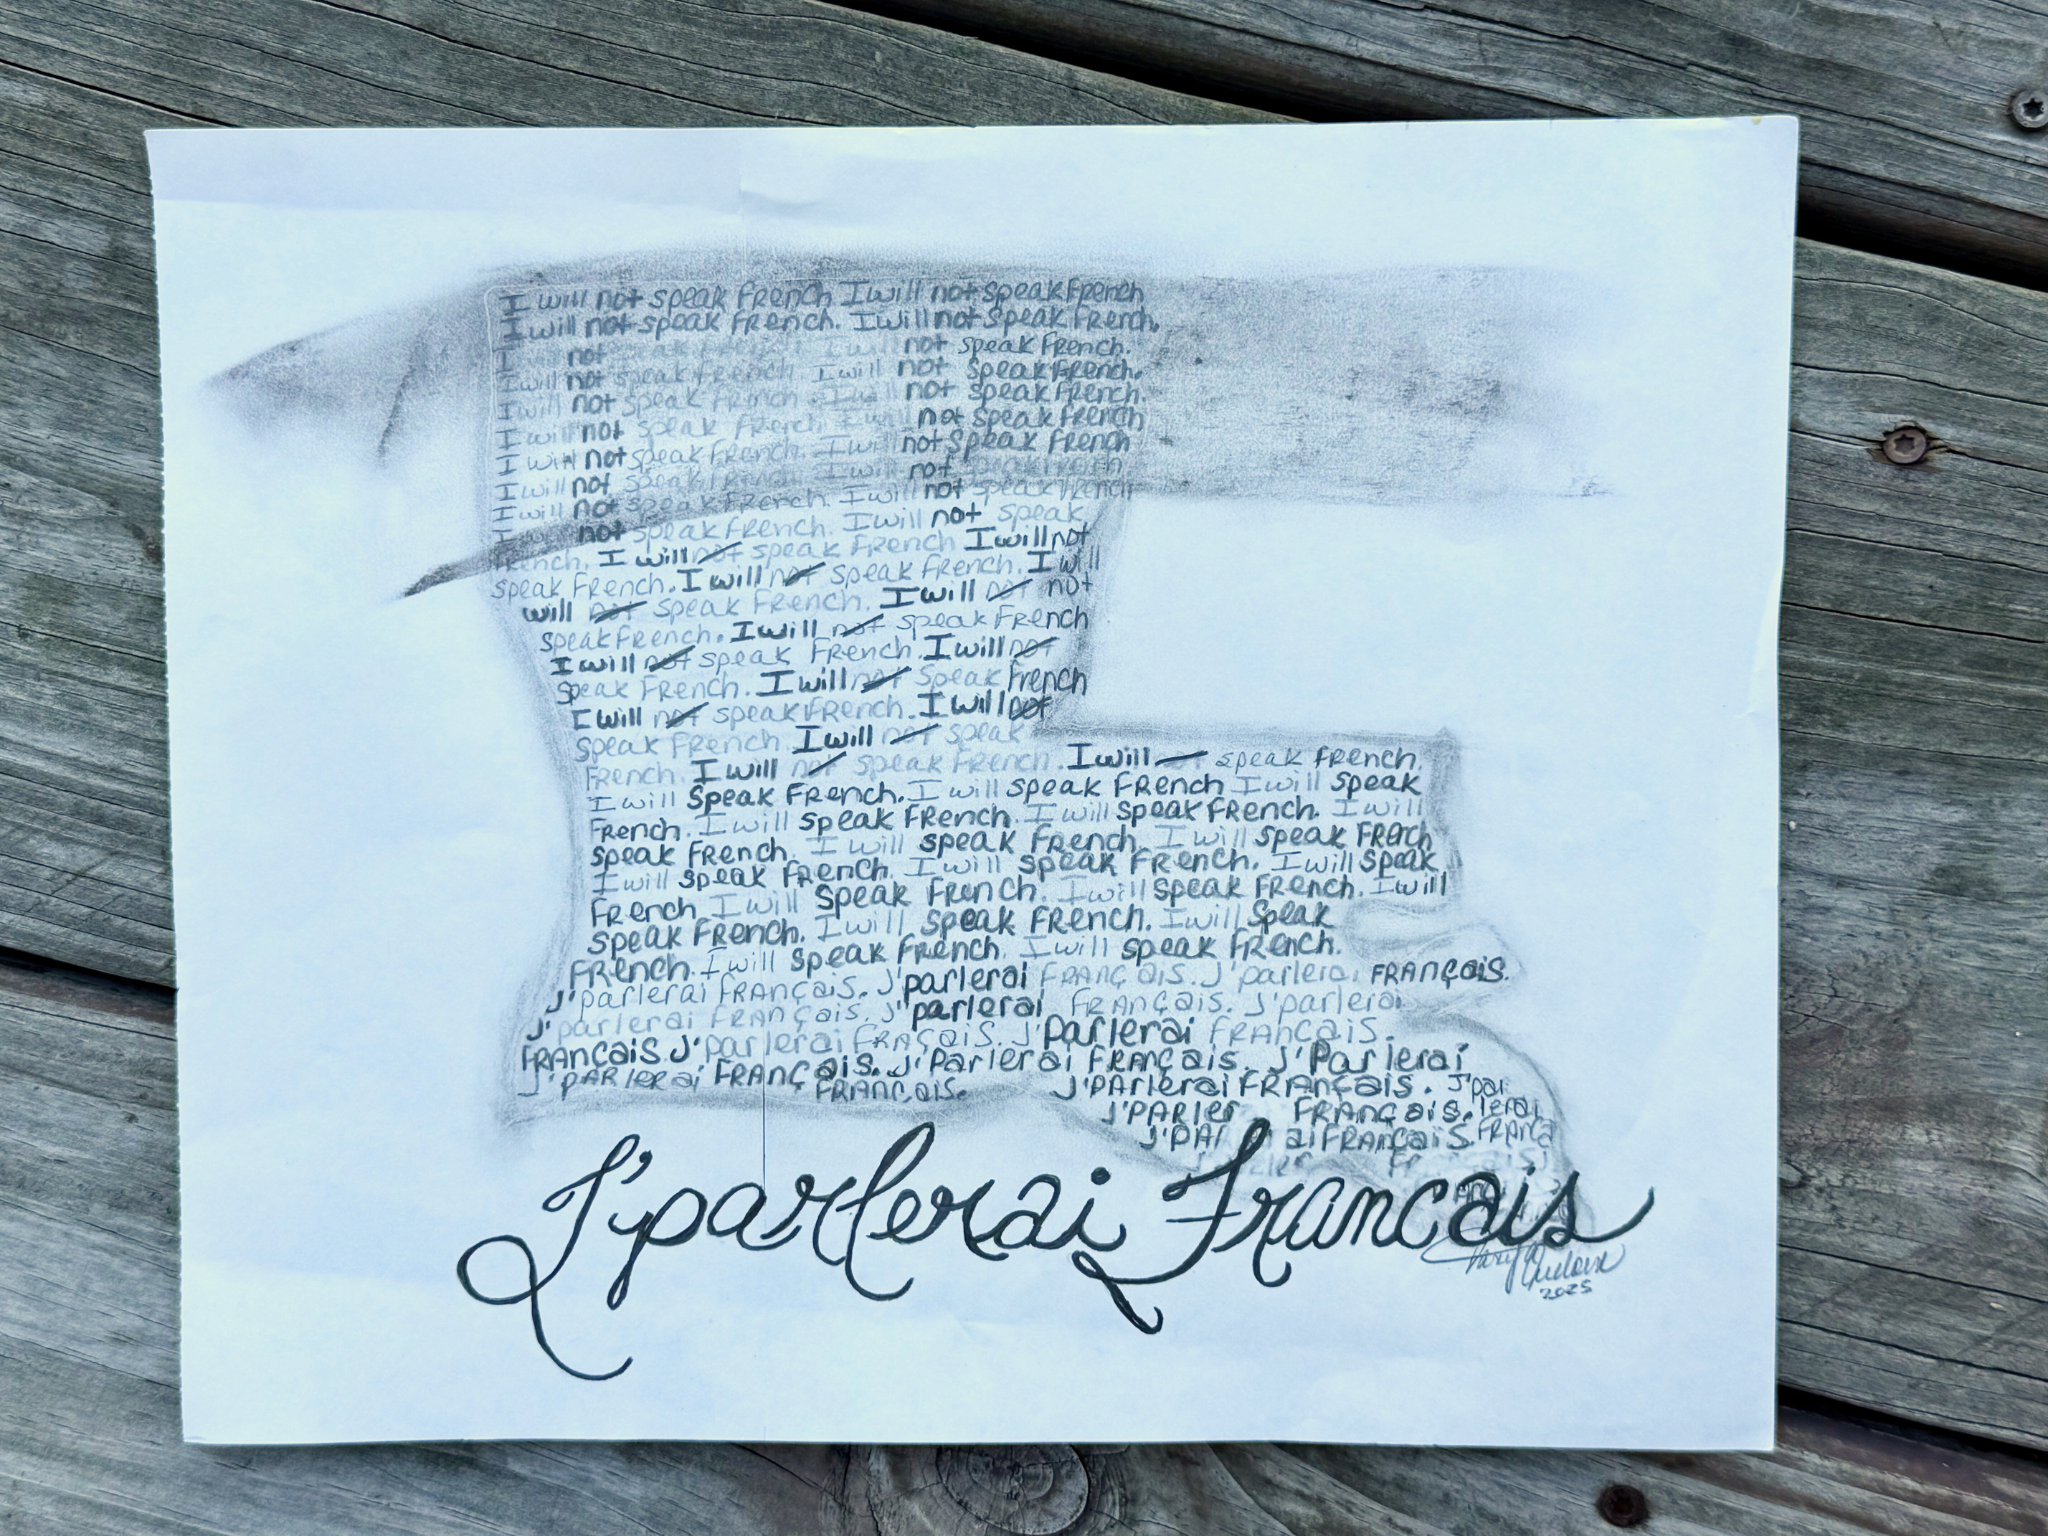 I will not speak French I will not speak French
I will not speak French. I will not speak French.
I not speak French. I will not speak French.
I will not speak French. I will not speak French.
I will not speak French. I will not speak French.
I will not speak French. I will not speak French
I will not speak French. I will not speak French
I will not speak French. I will not
I will not speak French. I will not speak French
not speak French. I will not speak
French. I will not speak French I will not
speak French. I will not speak French. I will
will not speak French. I will not not
speak French. I will not speak French
I will not speak French. I will not
speak French. I will not speak French
I will not speak French. I will not
speak French. I will not speak
French. I will not speak French. I will speak French.
I will speak French. I will speak French I will speak
French. I will speak French. I will speak French. I will
speak French. I will speak French. I will speak French
I will speak French. I will speak French. I will speak
French I will speak French. I will speak French. I will
speak French. I will speak French. I will speak
French. I will speak French. I will speak French.
J'parlerai FRANÇAIS. J'parlerai FRANÇAIS. J'parlerai FRANÇAIS.
J'parlerai FRANÇAIS. J'parlerai FRANÇAIS. J'parlerai
FRANÇAIS. J'parlerai FRANÇAIS. J'parlerai FRANÇAIS.
J'PARLERAI FRANÇAIS. J'Parlerai FRANÇAIS. J'Parlerai
FRANÇAIS. J'PARLERAI FRANÇAIS. J'par
J'PARLER FRANÇAIS. lerai
J'PAR ai FRANÇAIS. FRANÇA
J'parlerai Francais
2025